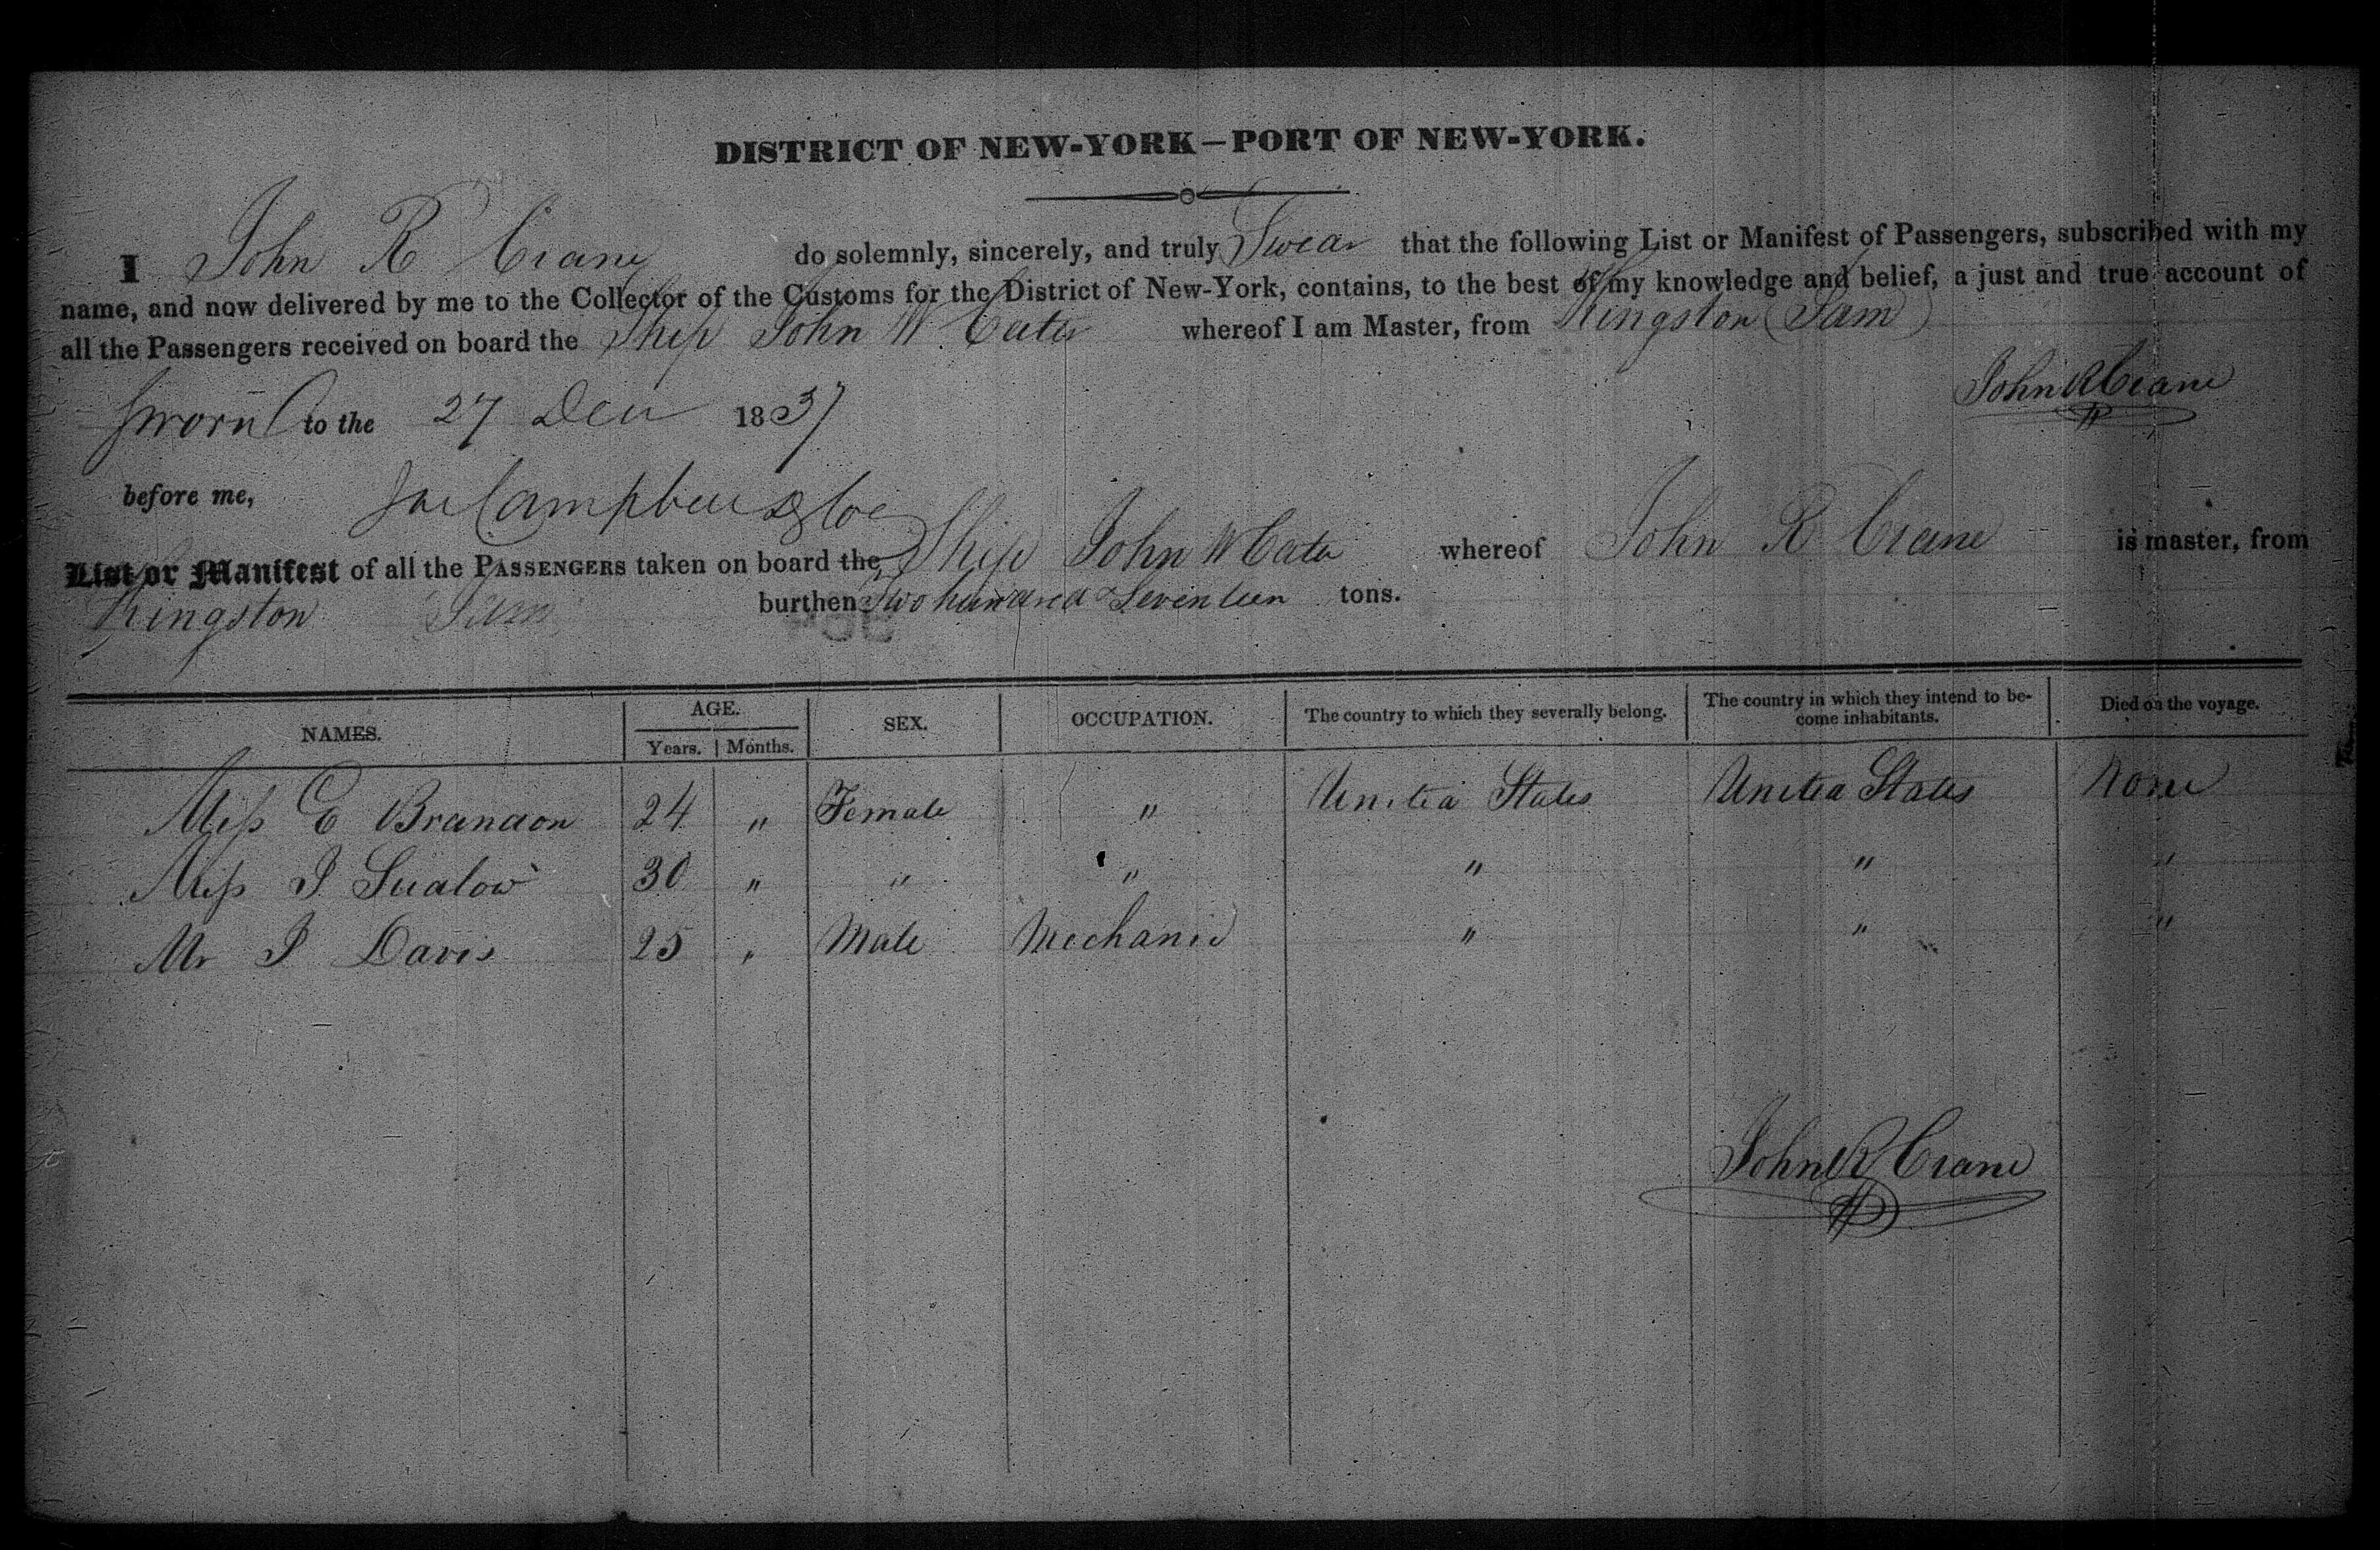 DISTRICT OF NEW-YORK—PORT OF NEW-YORK.
I John R Crane do solemnly, sincerely, and truly Swear that the following List or Manifest of Passengers, subscribed with my
name, and now delivered by me to the Collector of the Customs for the District of New-York, contains, to the best of my knowledge and belief, a just and true account of
all the Passengers received on board the Ship John W Cater whereof I am Master, from Kingston (Jam)
John R Crane
Sworn to the 27 Decr 1837
before me,
List or Manifest of all the PASSENGERS taken on board the Ship John W Cater whereof John R Crane is master, from
Kingston Jam burthen Two hundred & Seventeen tons.
NAMES. AGE. SEX. OCCUPATION. The country to which they severally belong. The country in which they intend to be- Died on the voyage.
come inhabitants.
Years. Months.
Miss E Brandon 24 " Female " United States United States None
Miss J 30 " " " " " "
Mr J Davis 25 " Male Mechanic " " "
John R Crane